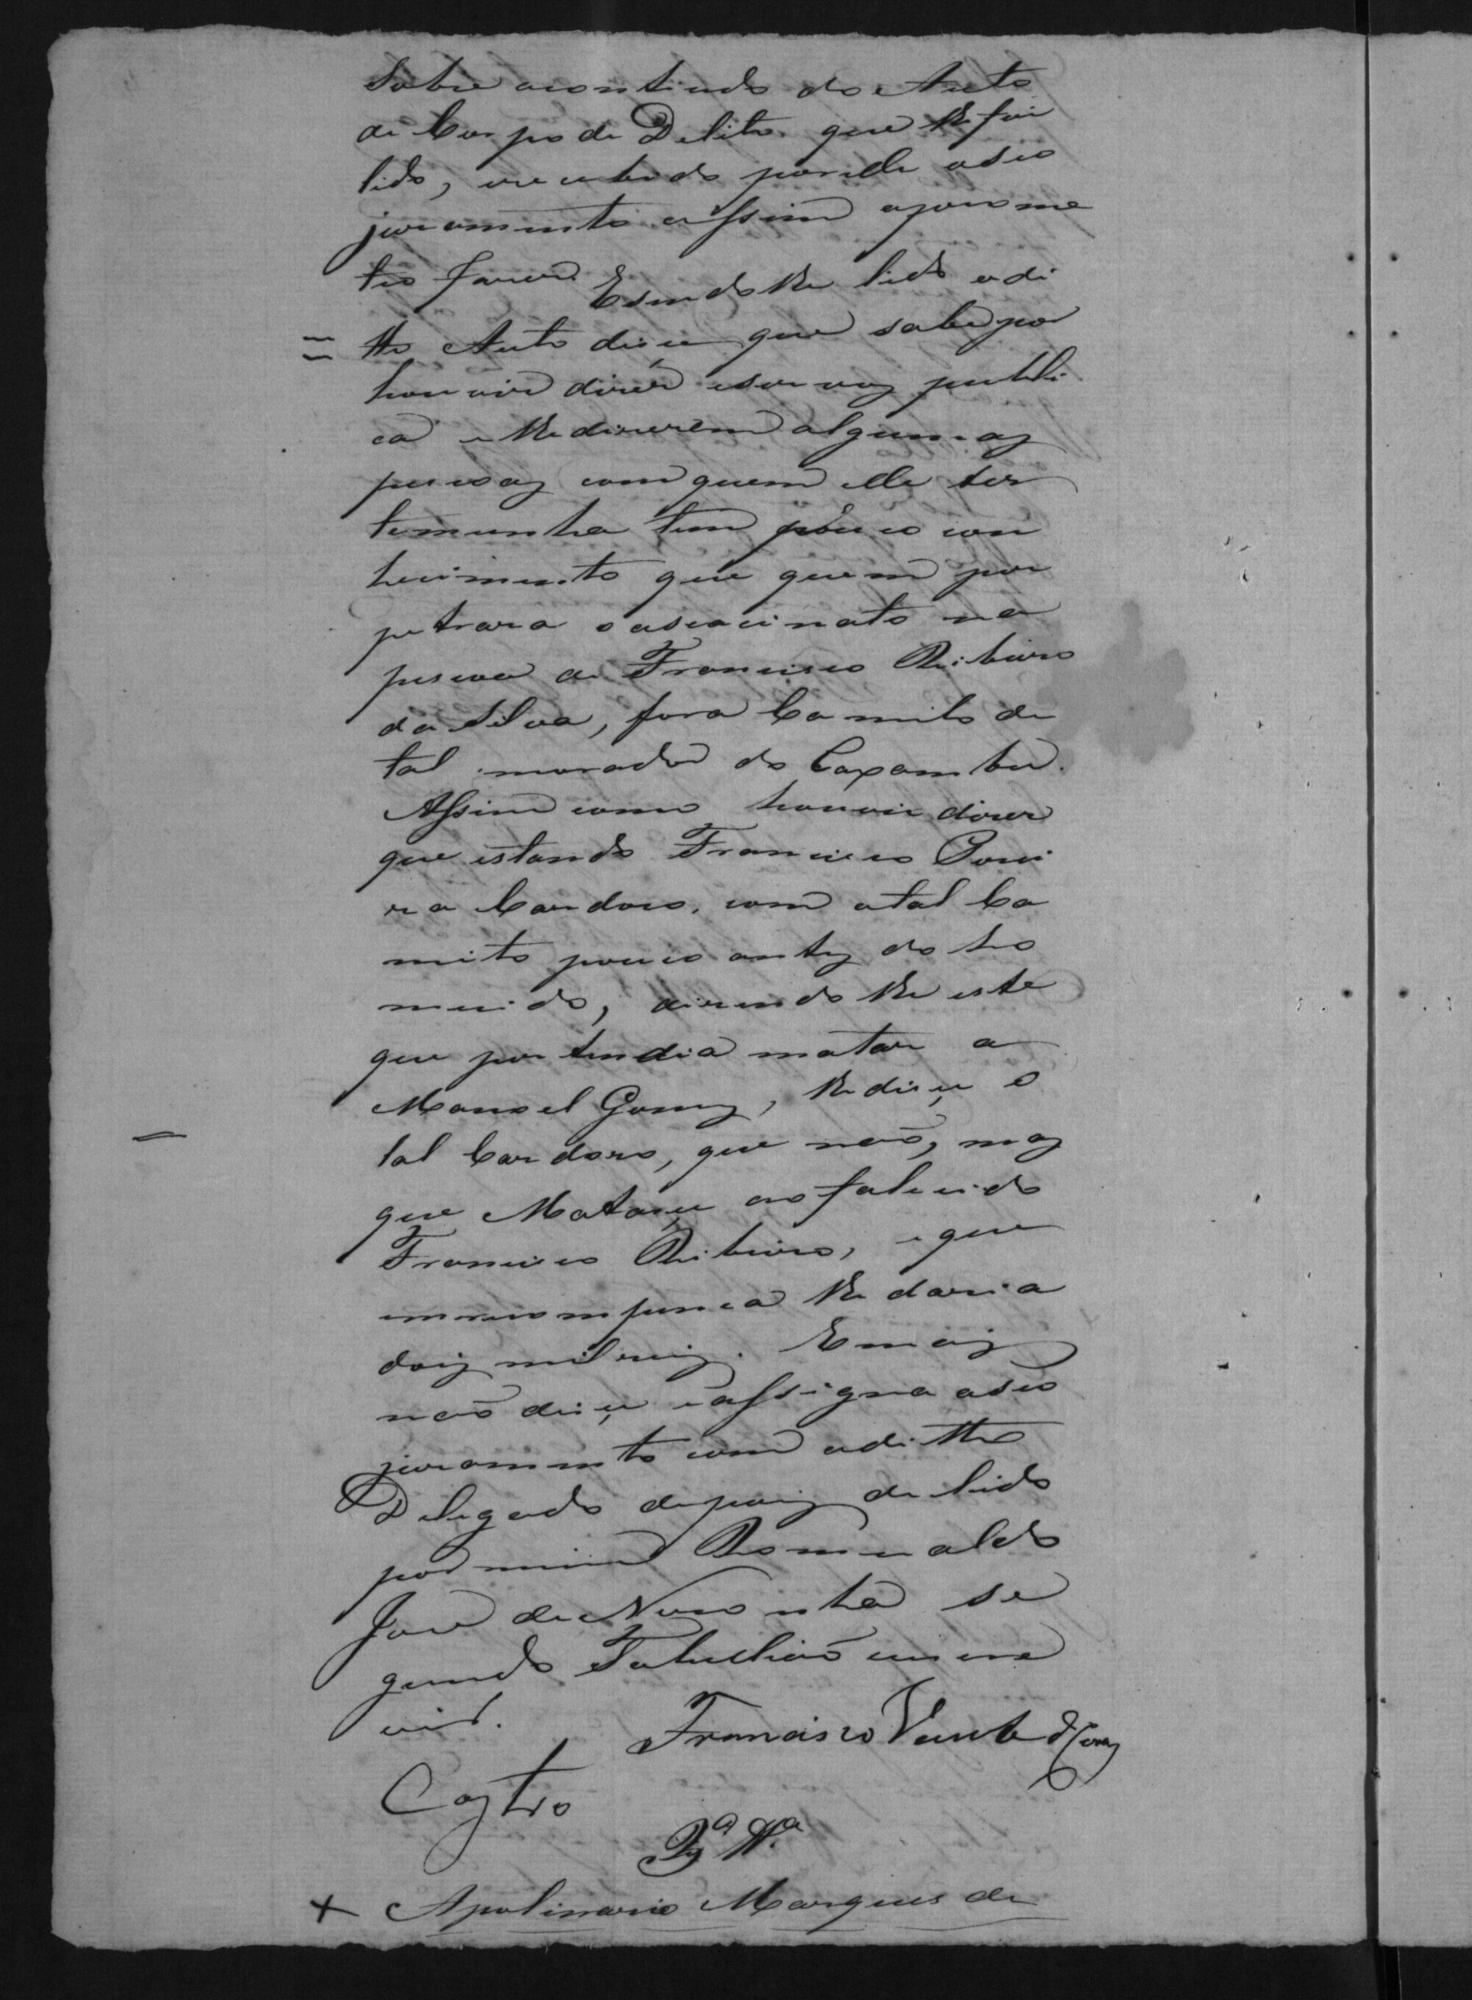 Sobre ocontiudo do Auto
de Corpo de Delito que lhe foi
lido, erecebido por elle oseo
juramento assim oprome
teo fazer. Esendo lhe lido odi
tto Auto disse que sabe por
houvir dizer eser voz publi
ca e lhe dizerem algumas
pessoas com quem elle tes
temunha tem pouco con
hecimento que quem per
petrara o assacinato na
pessoa de Francisco Ribeiro
da Silva, fora Camilo de
tal morador do Caxambu.
Assim como houvir dizer
que estando Francisco
ra Cardozo, com otal Ca
milo pouco antes do ho
mecido, dizendo lhe este
que pertendia matar a
Manoel Gomes, lhe disse o
tal Cardozo, que não, mas
que Matasse ao falecido
Francisco Ribeiro, e que
em recompença lhe daria
dois mil reis. Emais
não disse eassigna oseo
juramento com odittto
Delegado depois de lido
por mim Romualdo
José de Noronha se
gundo Tabellião escre
vid.
Francisco
Castro
Tª
Apolinario Marques de